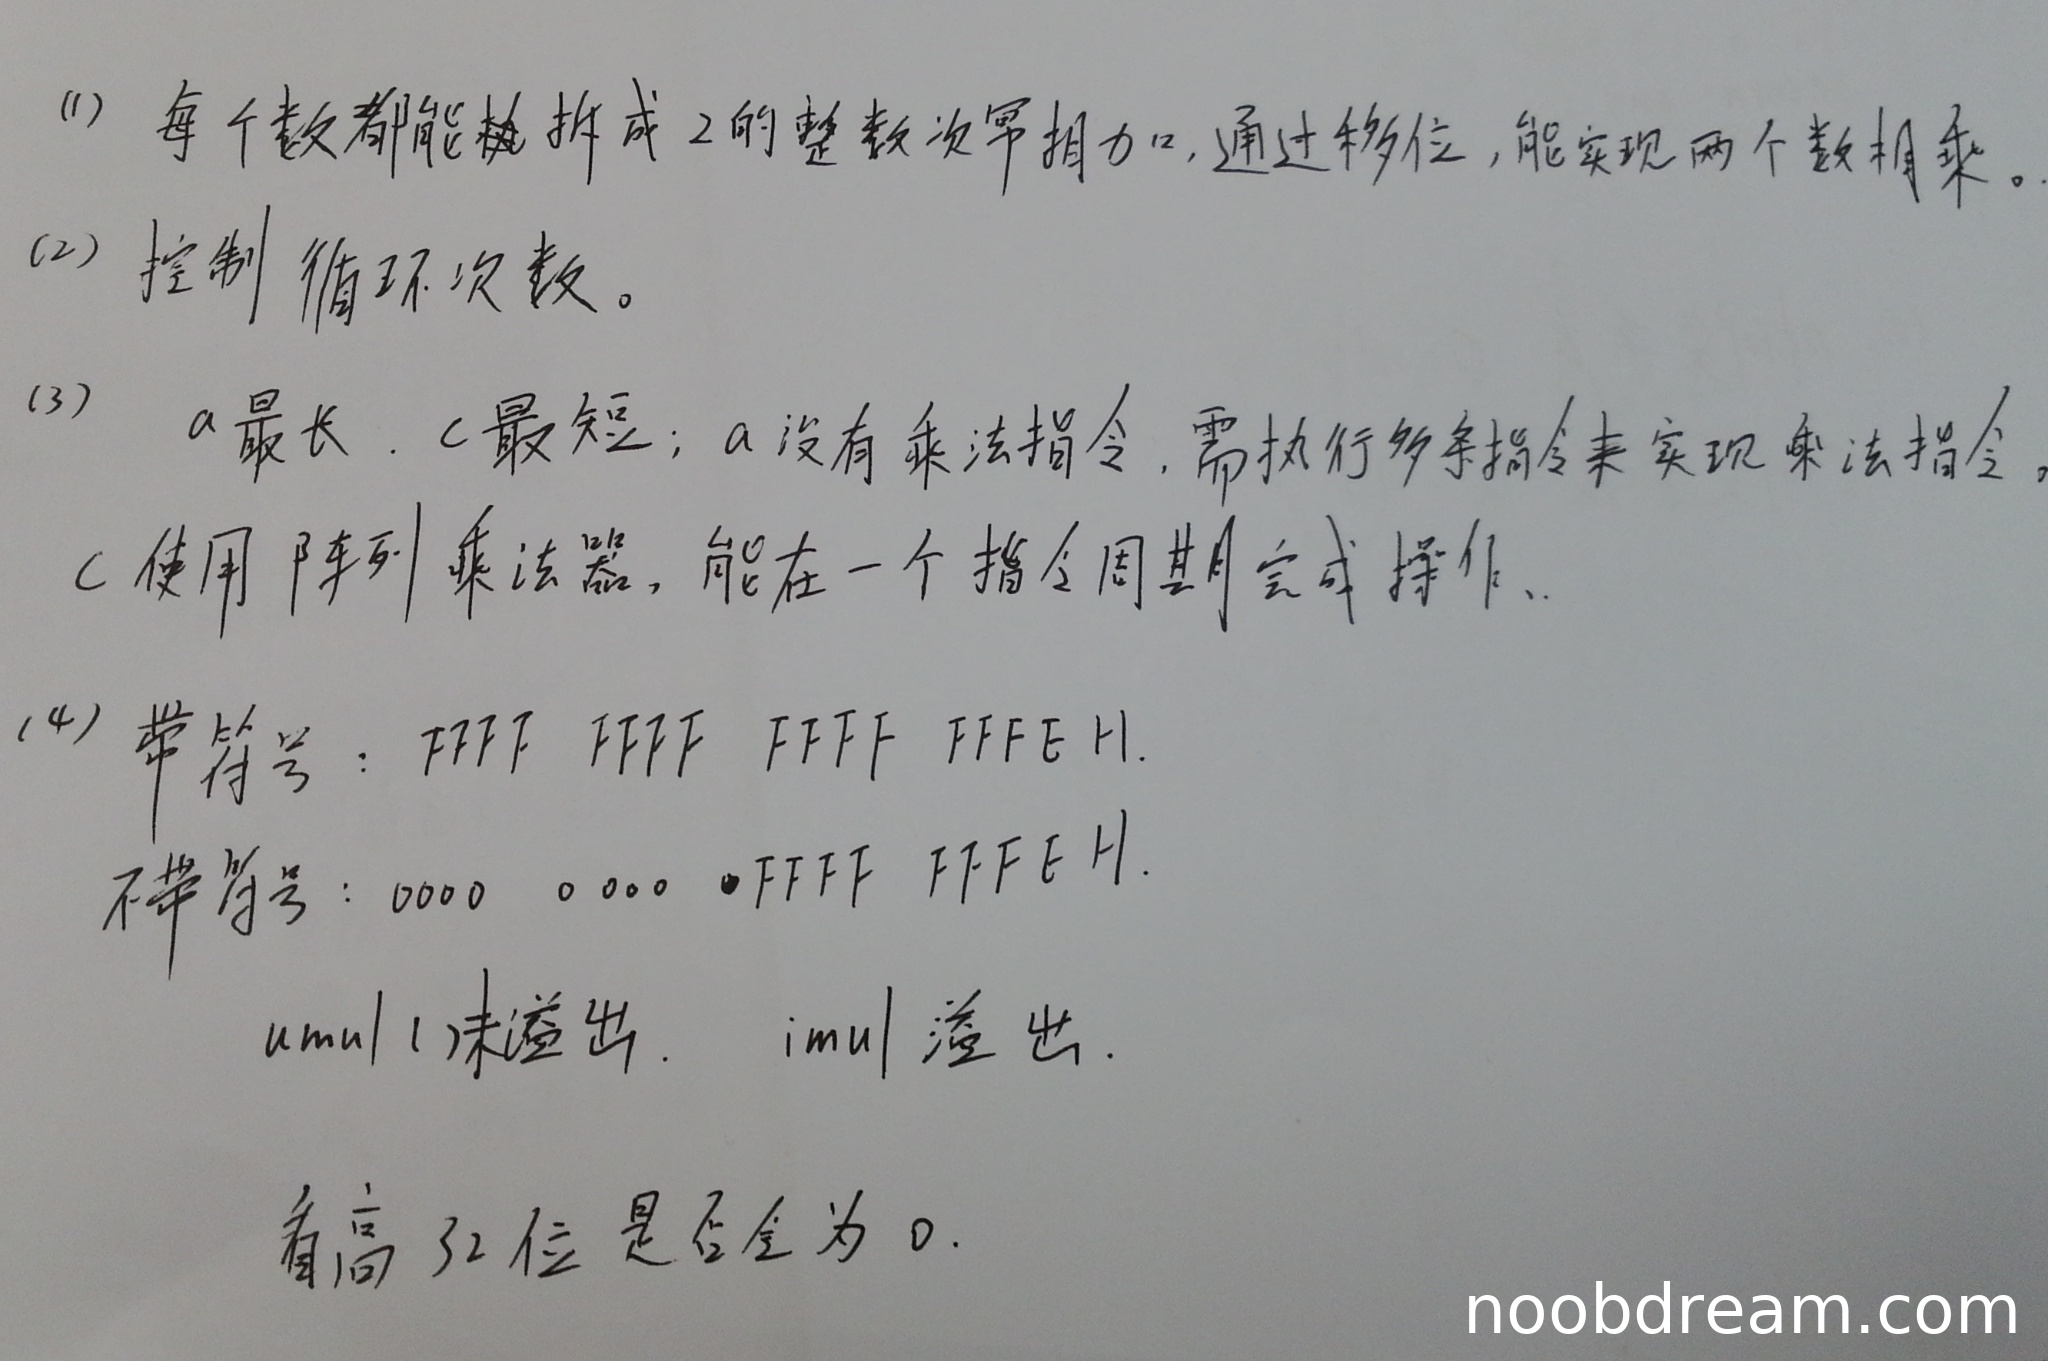 (1) 每个数都能拆成2的整数次幂相加,通过移位,能实现两个数相乘。
(2) 控制循环次数。
(3) a最长.c最短;a没有乘法指令,需执行多条指令来实现乘法指令。
c使用阵列乘法器,能在一个指令周期完成操作、
(4) 带符号:FFFF FFFF FFFF FFFEH.
不带符号:0000 0000 FFFF FFFEH.
umul()未溢出. imul溢出.
看高32位是否全为0.
noobdream.com